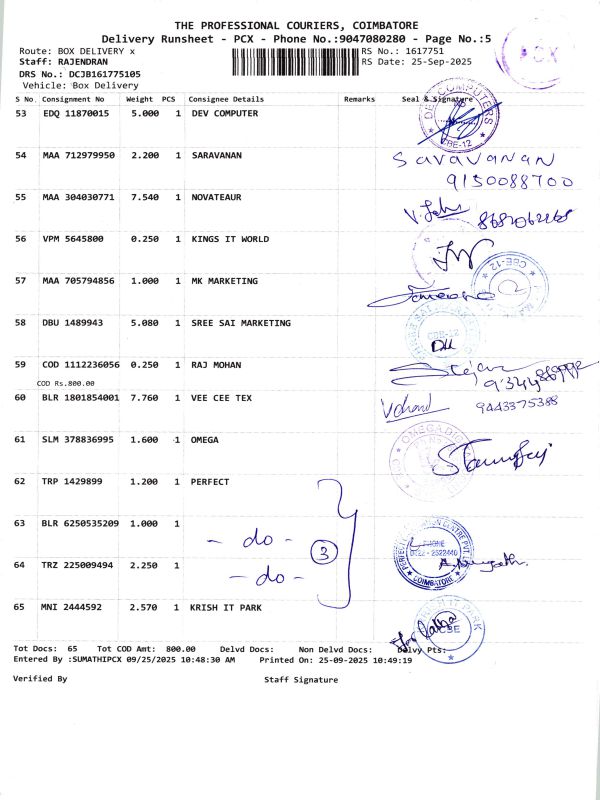 THE PROFESSIONAL COURIERS, COIMBATORE
Delivery Runsheet - PCX - Phone No.:9047080280 - Page No.:5
Route: BOX DELIVERY x
RS No.: 1617751
Staff: RAJENDRAN
RS Date: 25-Sep-2025
DRS No.: DCJB161775105
Vehicle: Box Delivery
PCX
S No. Consignment No Weight PCS Consignee Details Remarks Seal & Signature
53 EDQ 11870015 5.000 1 DEV COMPUTER
DEV COMPUTERS
CBE-12
54 MAA 712979950 2.200 1 SARAVANAN
SARAVANAN
9150088700
55 MAA 304030771 7.540 1 NOVATEAUR
56 VPM 5645800 0.250 1 KINGS IT WORLD
57 MAA 705794856 1.000 1 MK MARKETING
CBE-12
58 DBU 1489943 5.080 1 SREE SAI MARKETING
CBE-12
59 COD 1112236056 0.250 1 RAJ MOHAN
COD Rs.800.00
60 BLR 1801854001 7.760 1 VEE CEE TEX
9443375388
61 SLM 378836995 1.600 1 OMEGA
OMEGA
62 TRP 1429899 1.200 1 PERFECT
63 BLR 6250535209 1.000 1
- do -
3
PHONE
0422 - 2522440
COIMBATORE
64 TRZ 225009494 2.250 1
- do -
65 MNI 2444592 2.570 1 KRISH IT PARK
IT PARK
CBE
Tot Docs: 65 Tot COD Amt: 800.00 Delvd Docs: Non Delvd Docs: Delvy Pts:
Entered By :SUMATHIPCX 09/25/2025 10:48:30 AM Printed On: 25-09-2025 10:49:19
Verified By Staff Signature